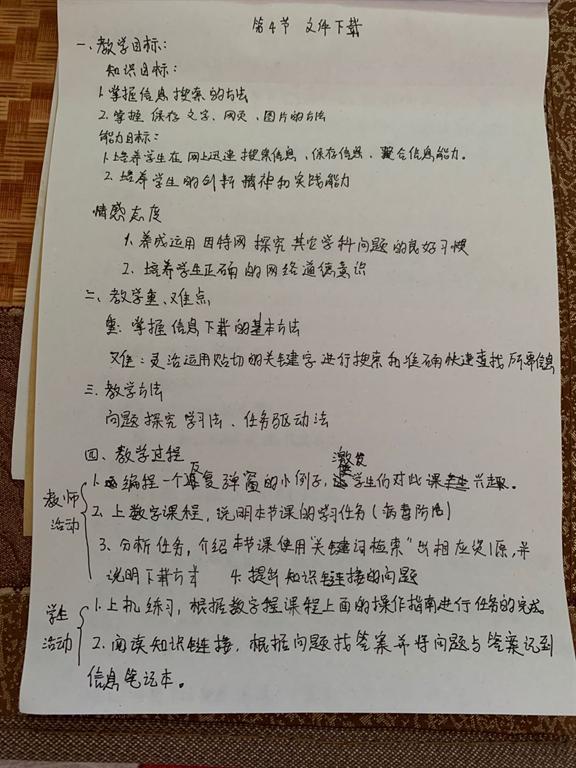 第4节 文件下载
一、教学目标：
知识目标：
1.掌握信息搜索的方法
2.掌握保存文字、网页、图片的方法
能力目标：
1.培养学生在网上迅速搜索信息、保存信息、整合信息能力。
2.培养学生的创新精神和实践能力
情感态度
1.养成运用因特网探究其它学科问题的良好习惯
2.培养学生正确的网络道德意识
二、教学重、难点
重：掌握信息下载的基本方法
难：灵活运用贴切的关键字进行搜索和准确快速查找所需信息
三.教学方法
问题探究学习法、任务驱动法
四、教学过程
教师活动
1.编程一个反复弹窗的小例子，激发学生们对此课兴趣。
2.上数字课程，说明本节课的学习任务（病毒阶段）
3.分析任务，介绍本节课使用“关键词检索”出相应资源，并
说明下载方式 4.提出知识链接的问题
学生活动
1.上机练习，根据数字程课程上面的操作指南进行任务的完成。
2.阅读知识链接，根据问题找答案并将问题与答案记到
信息笔记本。